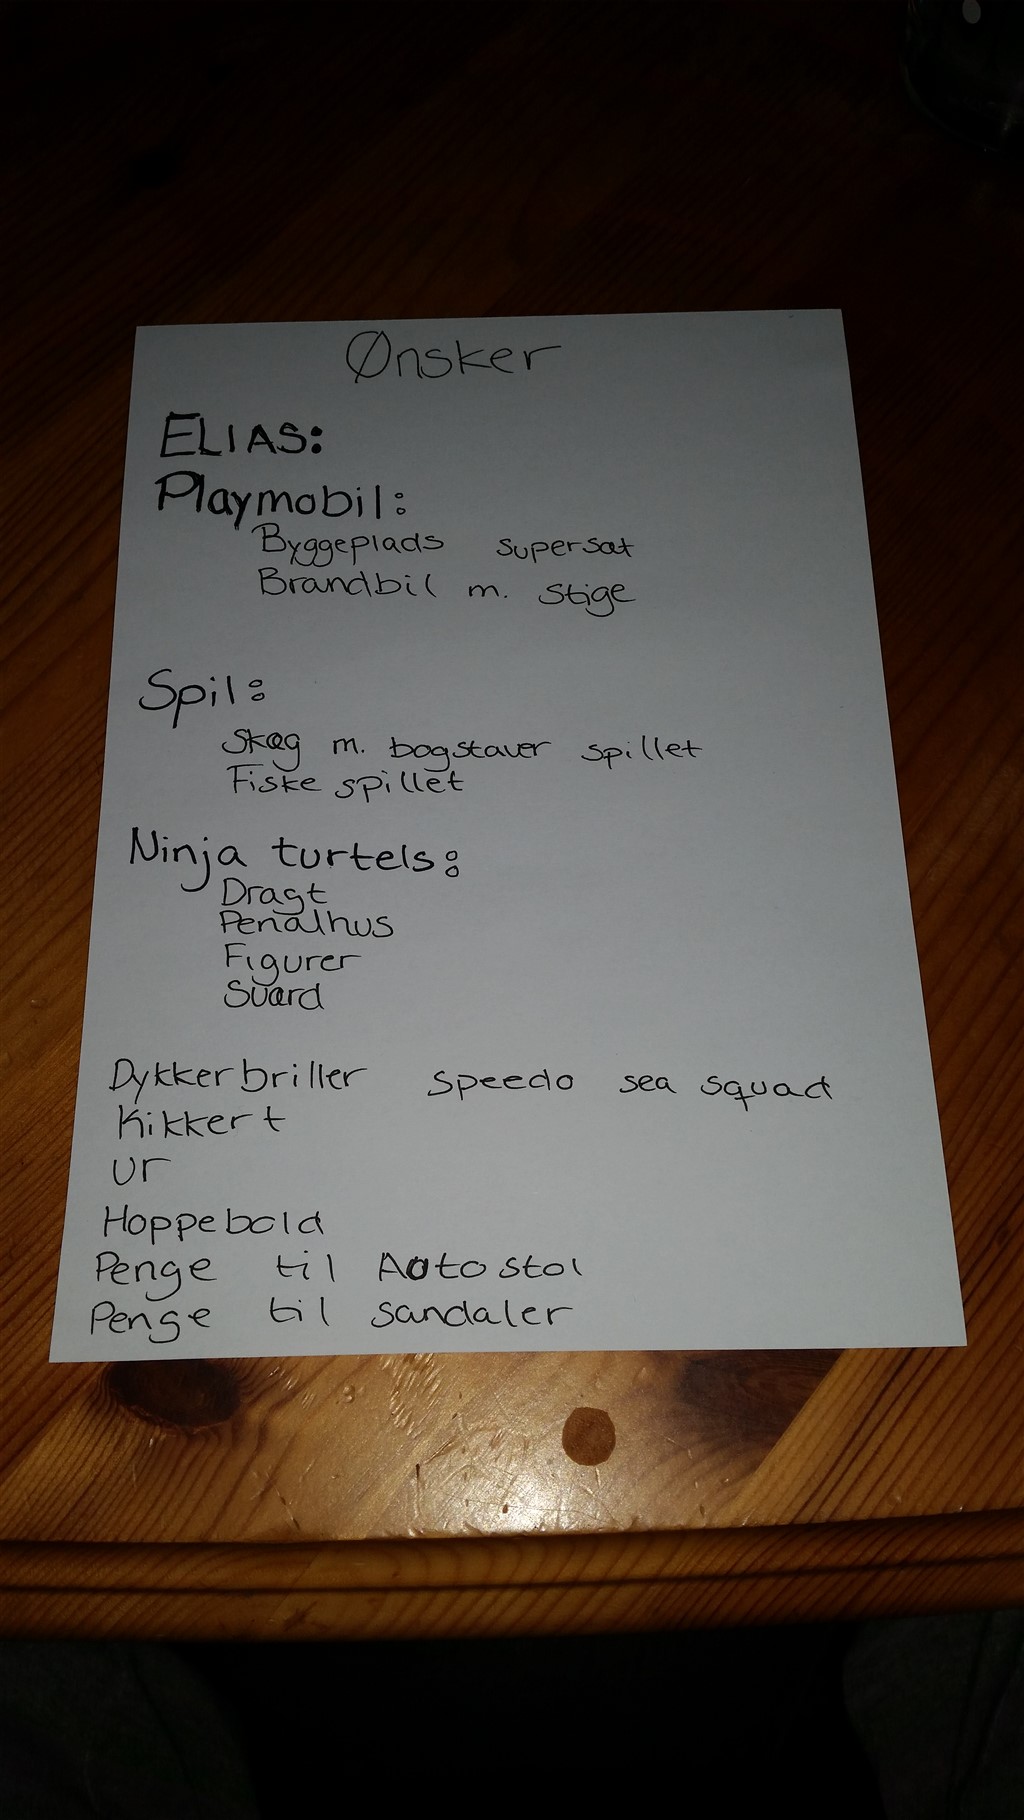 Ønsker
ELIAS:
Playmobil:
Byggeplads supersæt
Brandbil m. stige
Spil:
Skæg m. bogstaver spillet
Fiske spillet
Ninja turtels:
Dragt
Penalhus
Figurer
Sværd
Dykkerbriller speedo sea squad
Kikkert
ur
Hoppebold
Penge til Autostol
Penge til sandaler